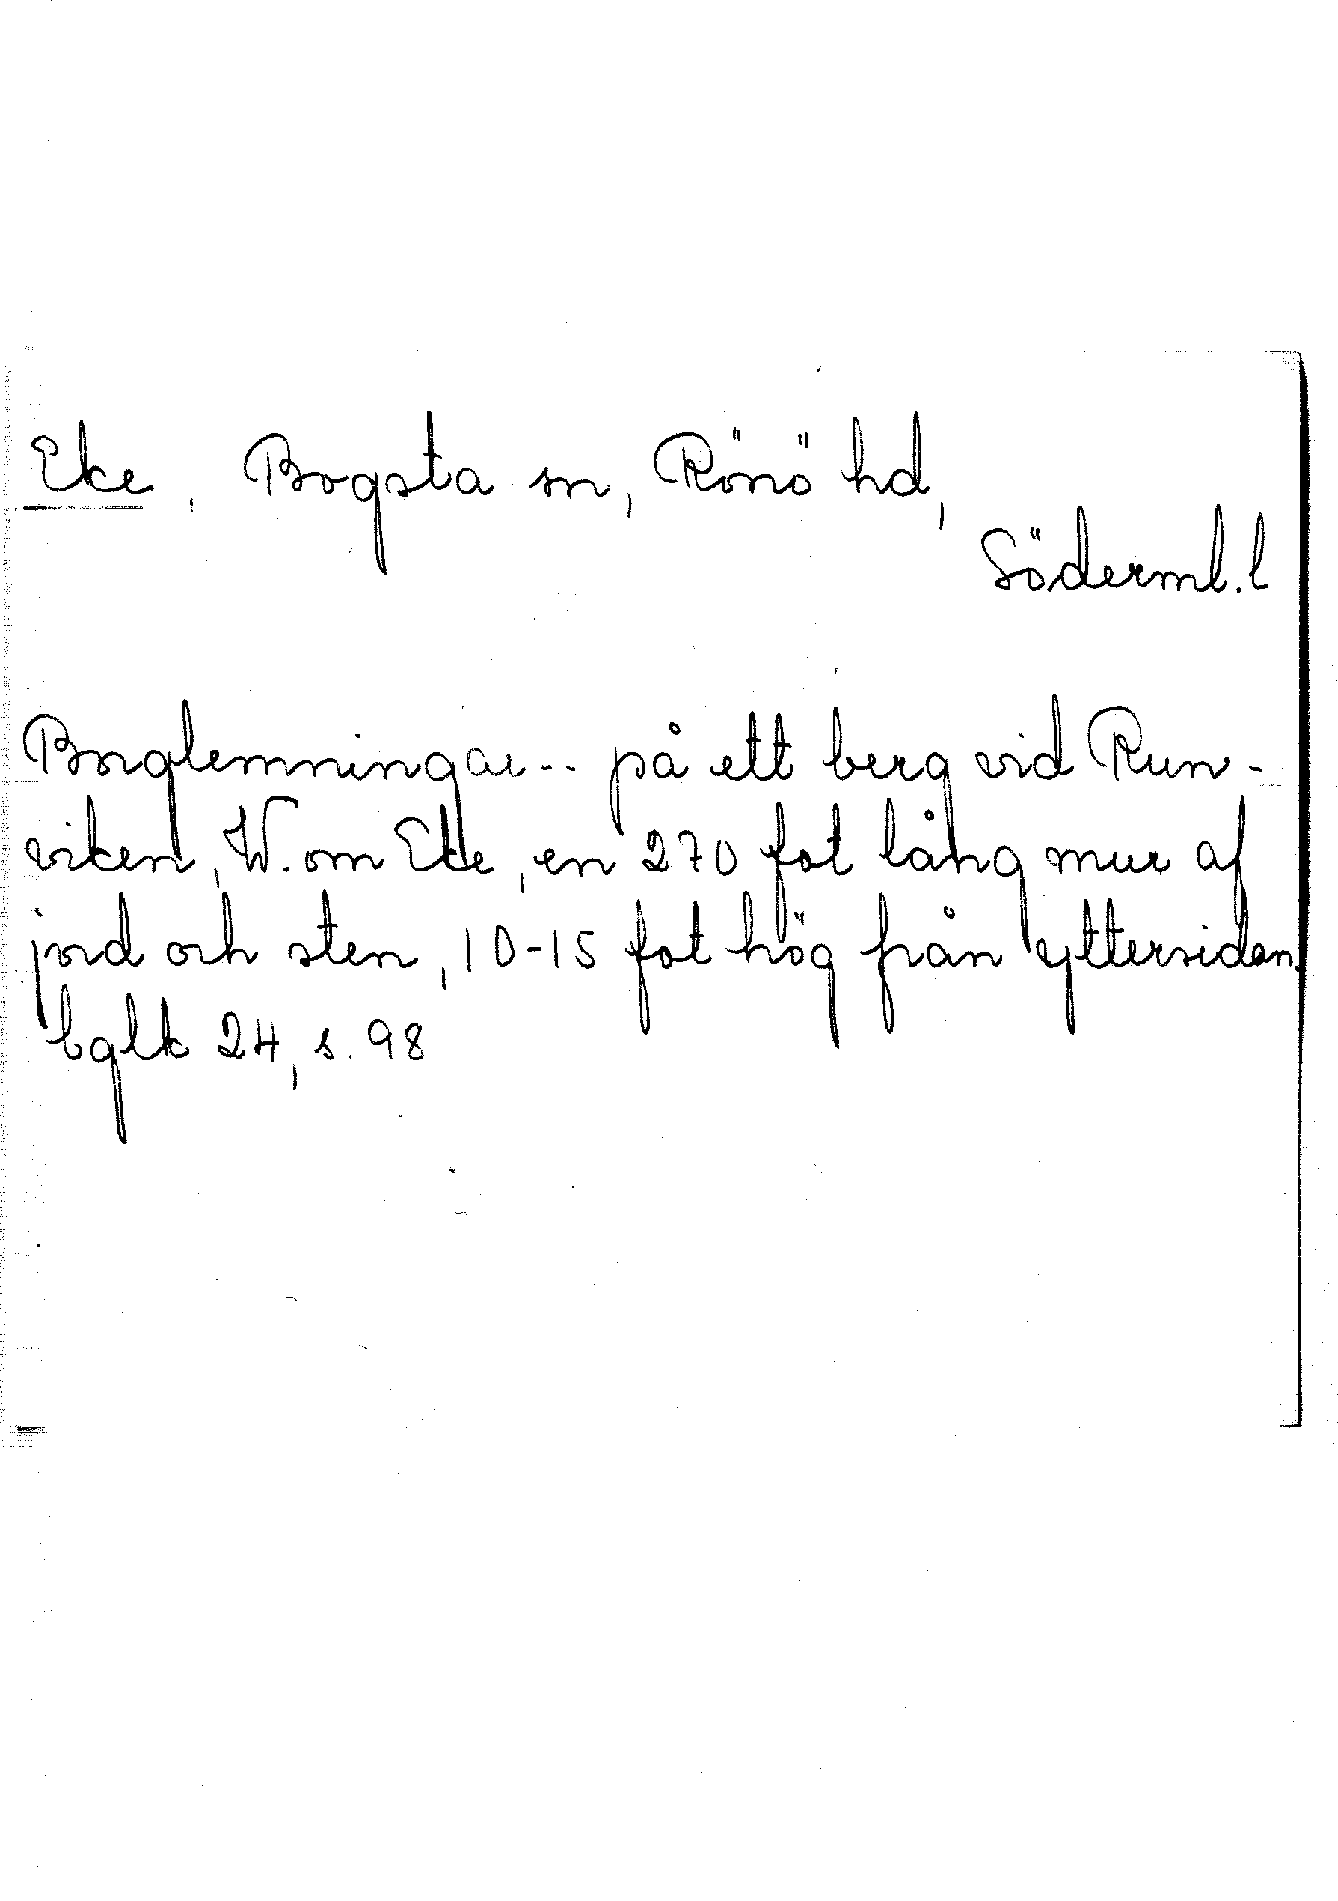 Eke, Bogsta sn, Rönö hd,
Söderml. l
Borglemningar -- på ett berg vid Run-
viken, W. om Eke, en 270 fot lång mur af
jord och sten, 10-15 fot hög från yttersidan.
bglk 24, s. 98